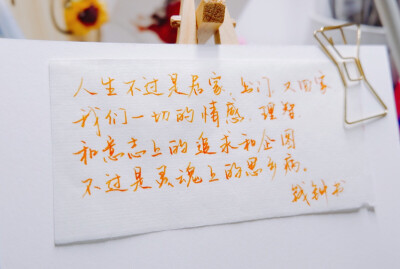 人生不过是居家、出门、又回家。
我们一切的情感、理智
和意志上的追求和企图
不过是灵魂上的思乡病。
钱钟书